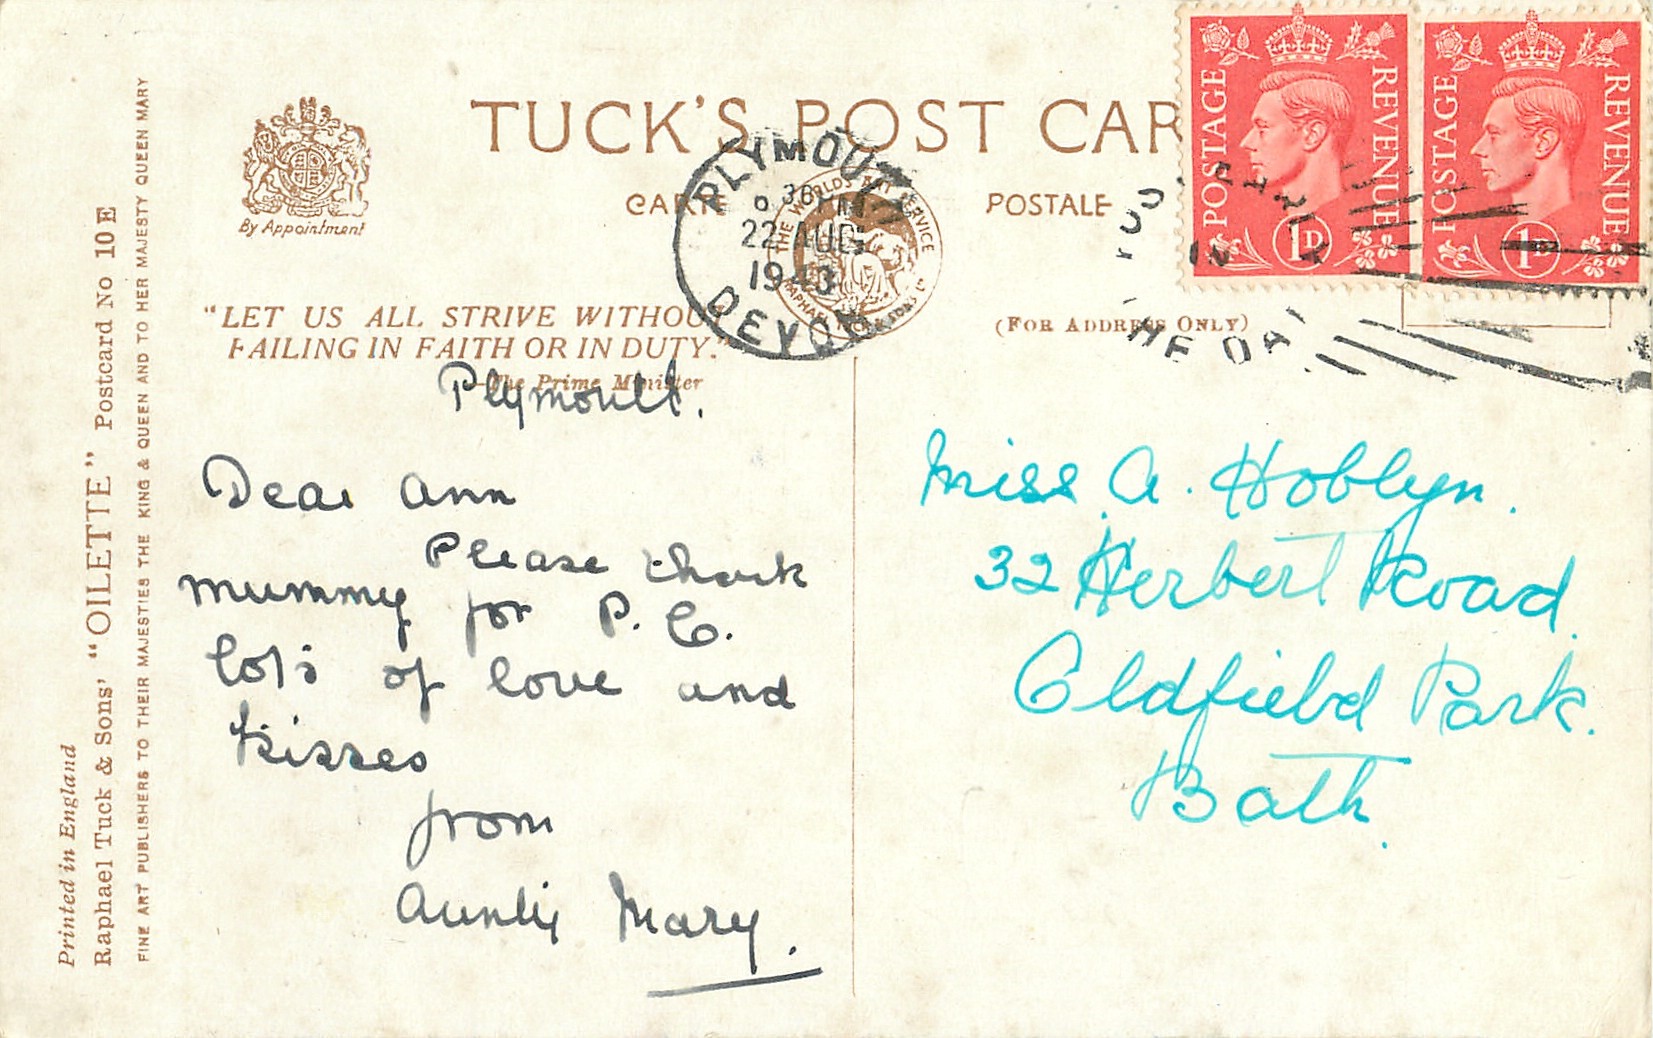 TUCK'S POST CAR
CARTE POSTALE
By Appointment
"LET US ALL STRIVE WITHOUT
FAILING IN FAITH OR IN DUTY."
—The Prime Minister
(FOR ADDRESS ONLY)
PLYMOUTH
22 AUG
1943
DEVON
THE WORLDS ART SERVICE
RAPHAEL TUCK & SONS LTD
POSTAGE REVENUE
1D
POSTAGE REVENUE
1D
Plymouth.
Dear Ann
Please thank
mummy for P. C.
lots of love and
kisses
from
Aunty Mary.
Miss A. Hoblyn.
32 Herbert Road
Oldfield Park.
Bath.
Printed in England
Raphael Tuck & Sons' "OILETTE" Postcard No 10 E
FINE ART PUBLISHERS TO THEIR MAJESTIES THE KING & QUEEN AND TO HER MAJESTY QUEEN MARY